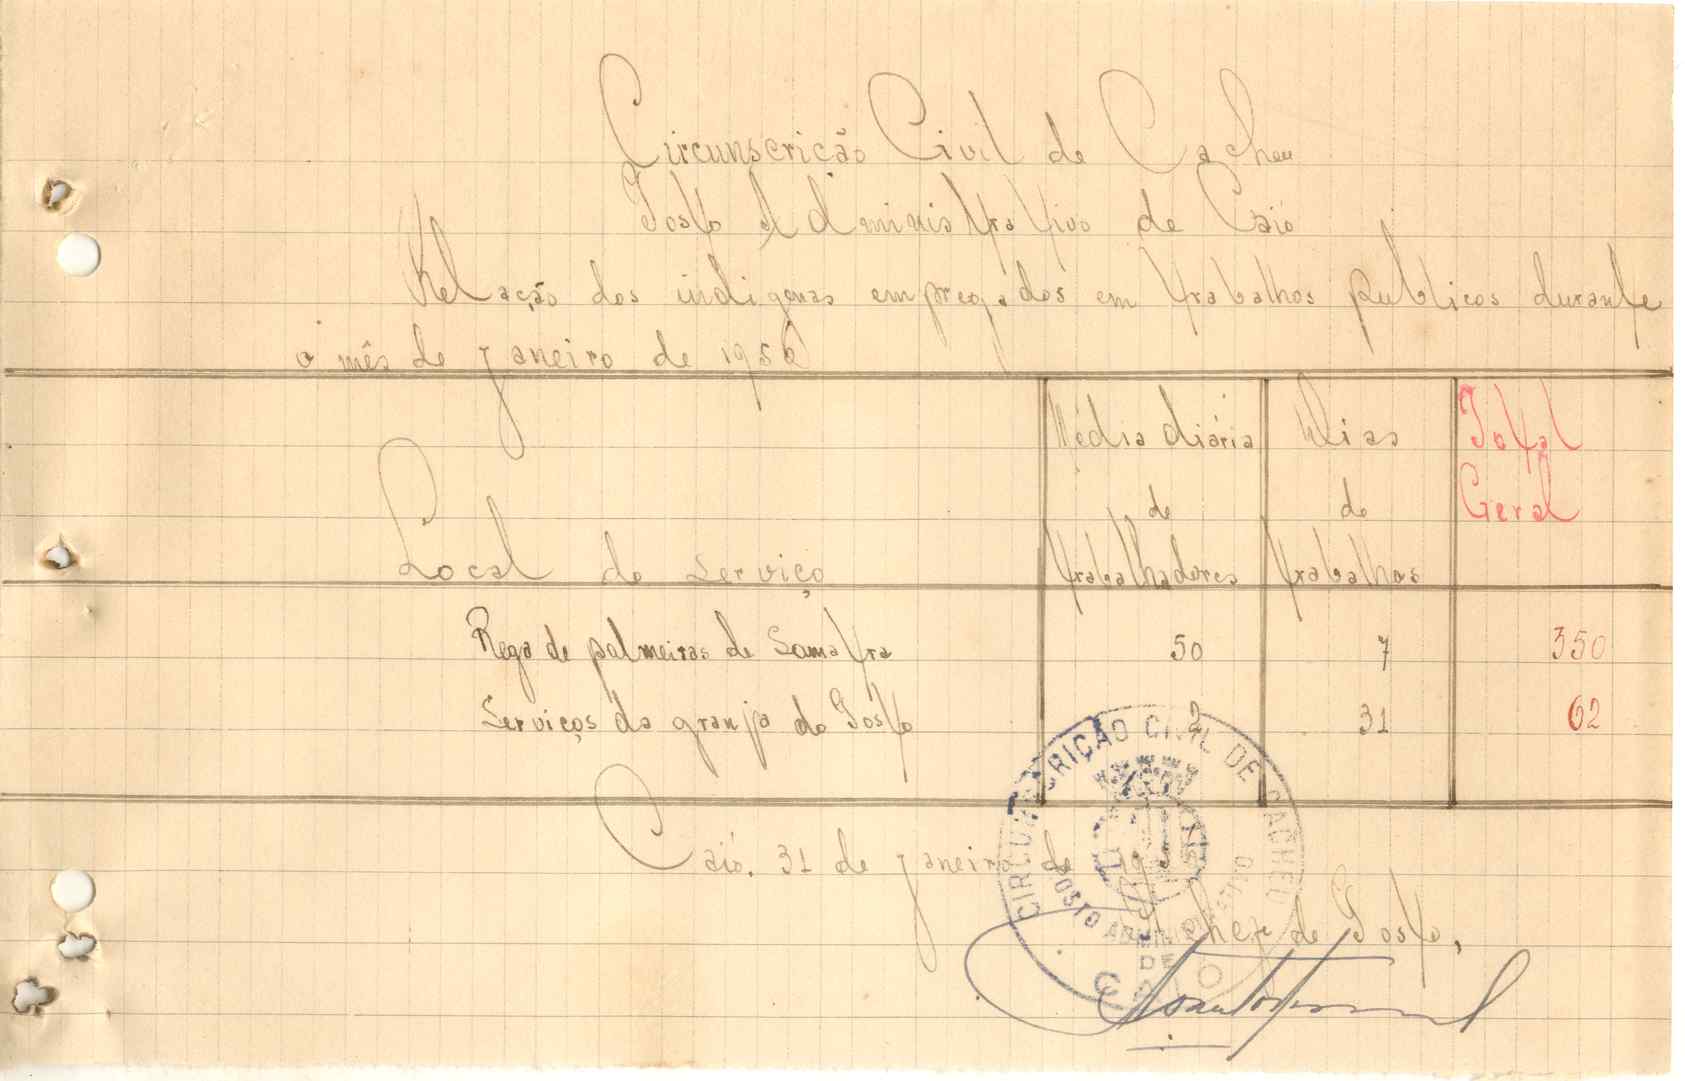 Circunscrição Civil de Cacheu
Posto Administrativo de Caió
Relação dos indigenas empregados em trabalhos publicos durante
o mês de janeiro de 1956
Local do serviço
Média diária de trabalhadores
Dias de trabalhos
Total Geral
Rega de palmeiras de Samatra 50 7 350
Serviços da granja do Posto 2 31 62
Caió, 31 de janeiro de
CIRCUNSCRIÇÃO CIVIL DE CACHEU
POSTO ADMINISTRATIVO
DE
O Chefe do Posto,